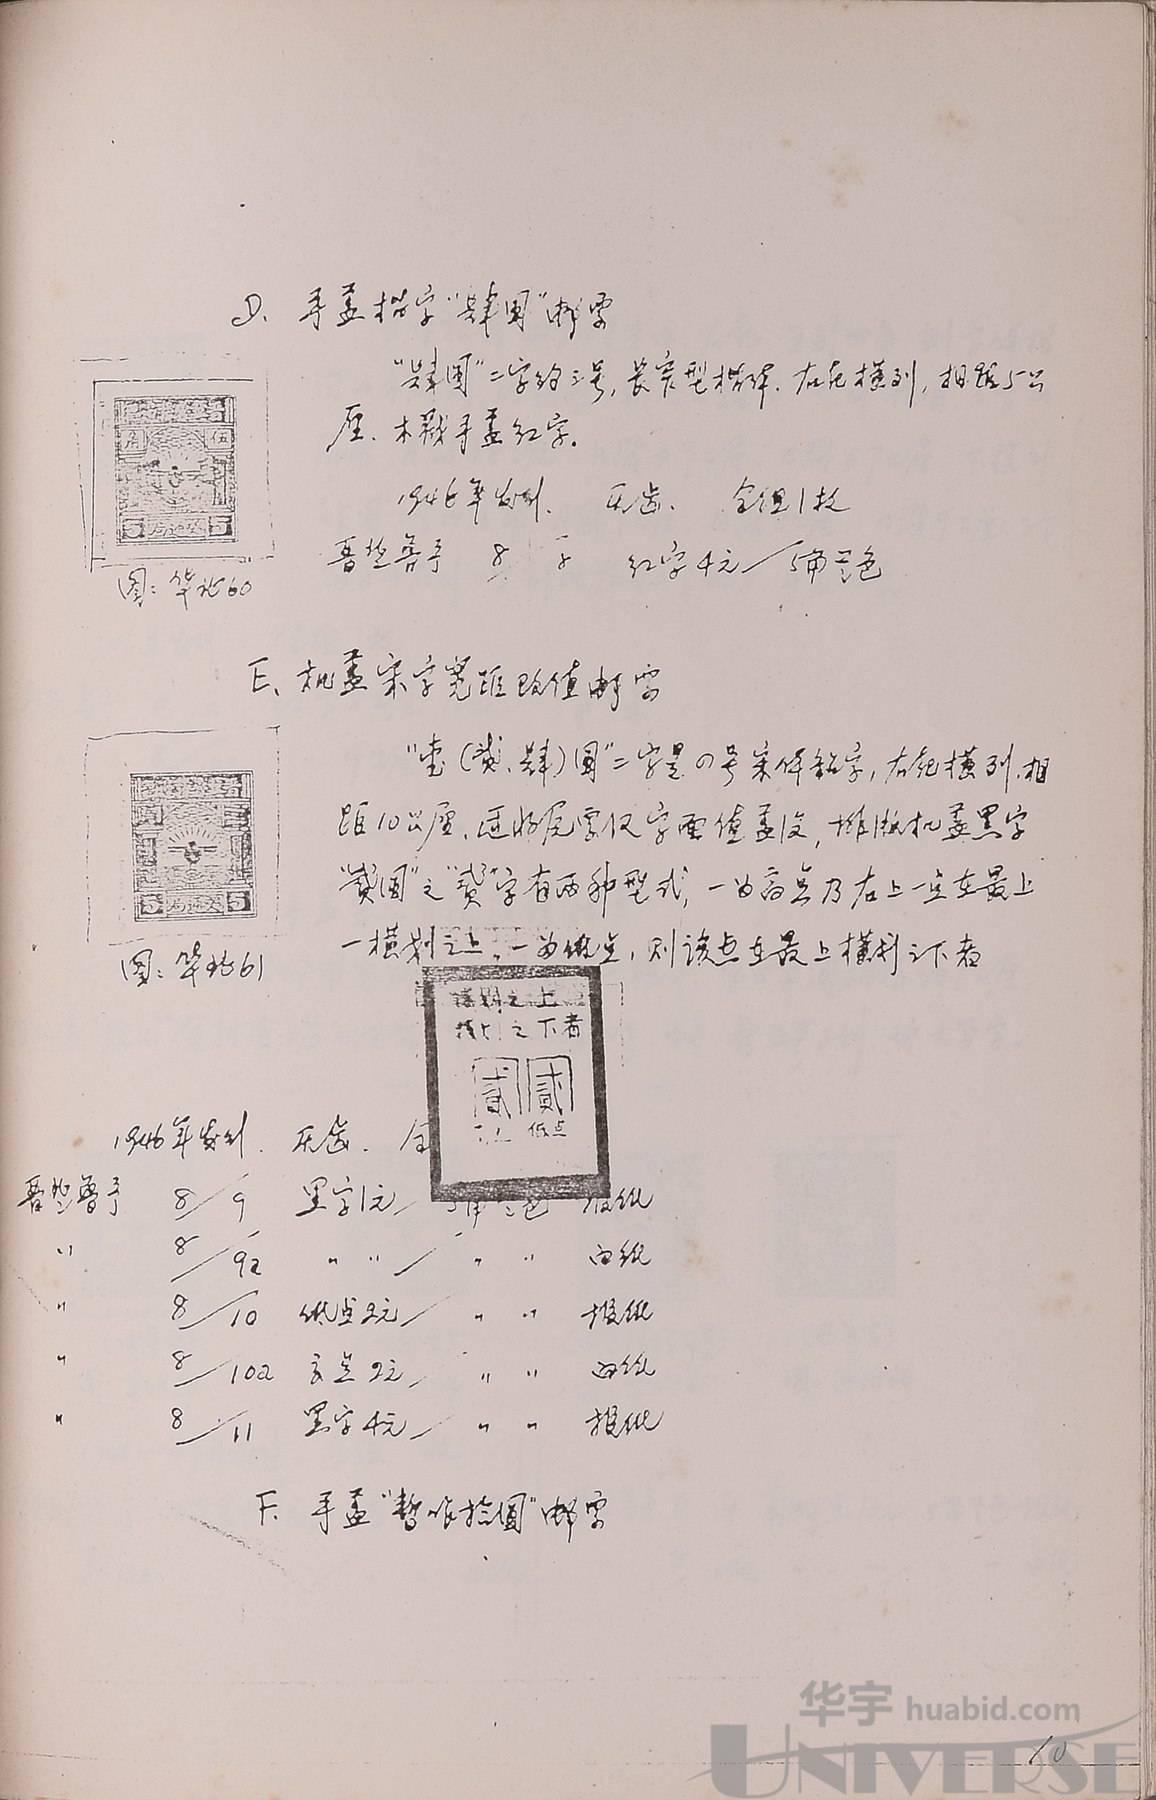 D. 手盖楷字"肆圆"邮票
"肆圆"二字约三号,长宋型楷体.右起横列,相距5公
厘.木戳手盖红字。
1946年发行. 无齿. 全组1枚
晋冀鲁予 8 红字4元/5角兰色
图:华北60
E. 机盖宋字宽距改值邮票
"壹(贰、肆)圆"二字是四号宋体铅字,右起横列.相
距10公厘.排版机盖黑字
"贰圆"之"贰"字有两种型式,一为高点乃右上一点在最上
一横划之上.一为低点,则该点在最上横划之下者
图:华北61
横划之上
横划之下者
贰 贰
低点
1946年发行. 无齿. 全
晋冀鲁予 8/9 黑字1元/5角兰色 报纸
" 8/9a " " / " " 白纸
" 8/10 低点2元/ " " 报纸
" 8/10a 高点2元/ " " 白纸
" 8/11 黑字4元/ " " 报纸
F. 手盖"暂作拾圆"邮票
10
华宇 huabid.com
UNIVERSE